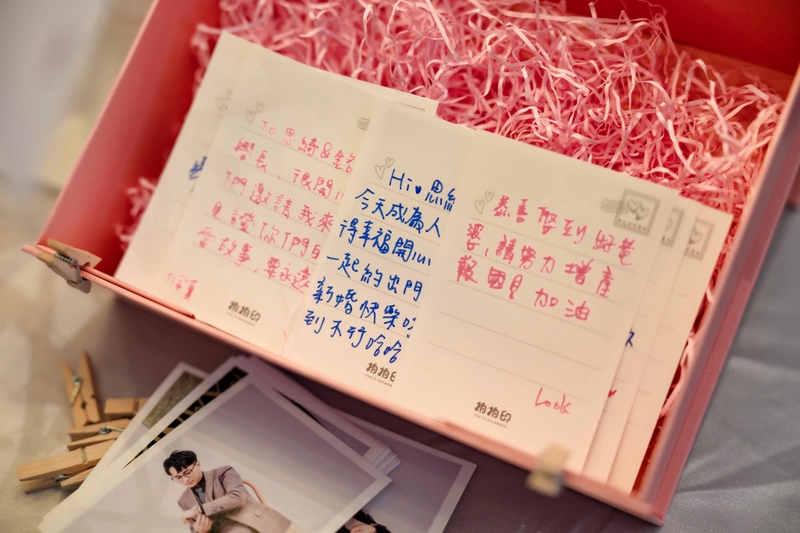 To 思綺&名
學長，很開心
們邀請我來
見證你們自
愛故事，要永遠
Hi♥思綺
今天成為人
得幸福開心
一起約出門
新婚快樂
到不行哈哈
拍拍印
恭喜娶到好老
婆，請努力增產
報國 加油
Look
拍拍印
拍拍印